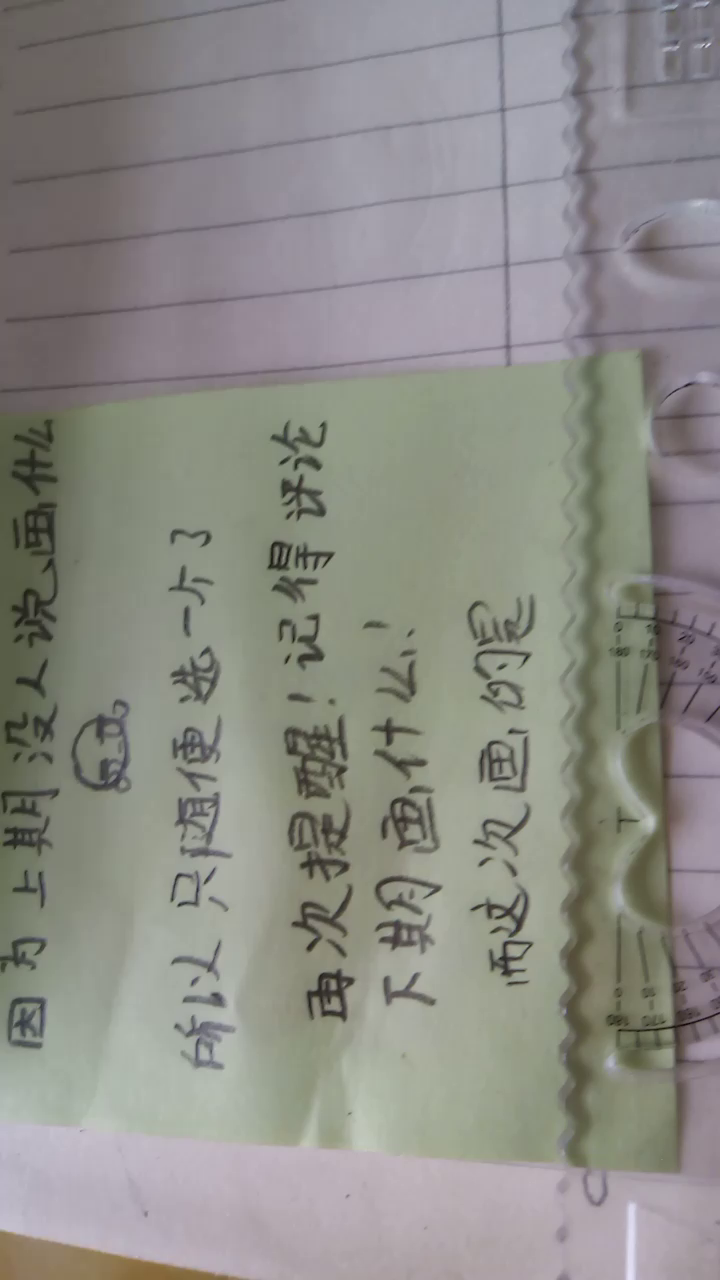 因为上期没人说画什么
所以只随便选一个了
再次提醒！记得评论
下期画什么！
而这次画的是